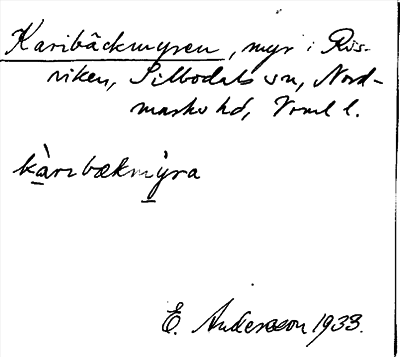 Karibäckmyren, myr i Rös-
viken, Silbodals sn, Nord-
marks hd, Vrml l.
kàrɩbækmỳra
E. Andersson 1933.